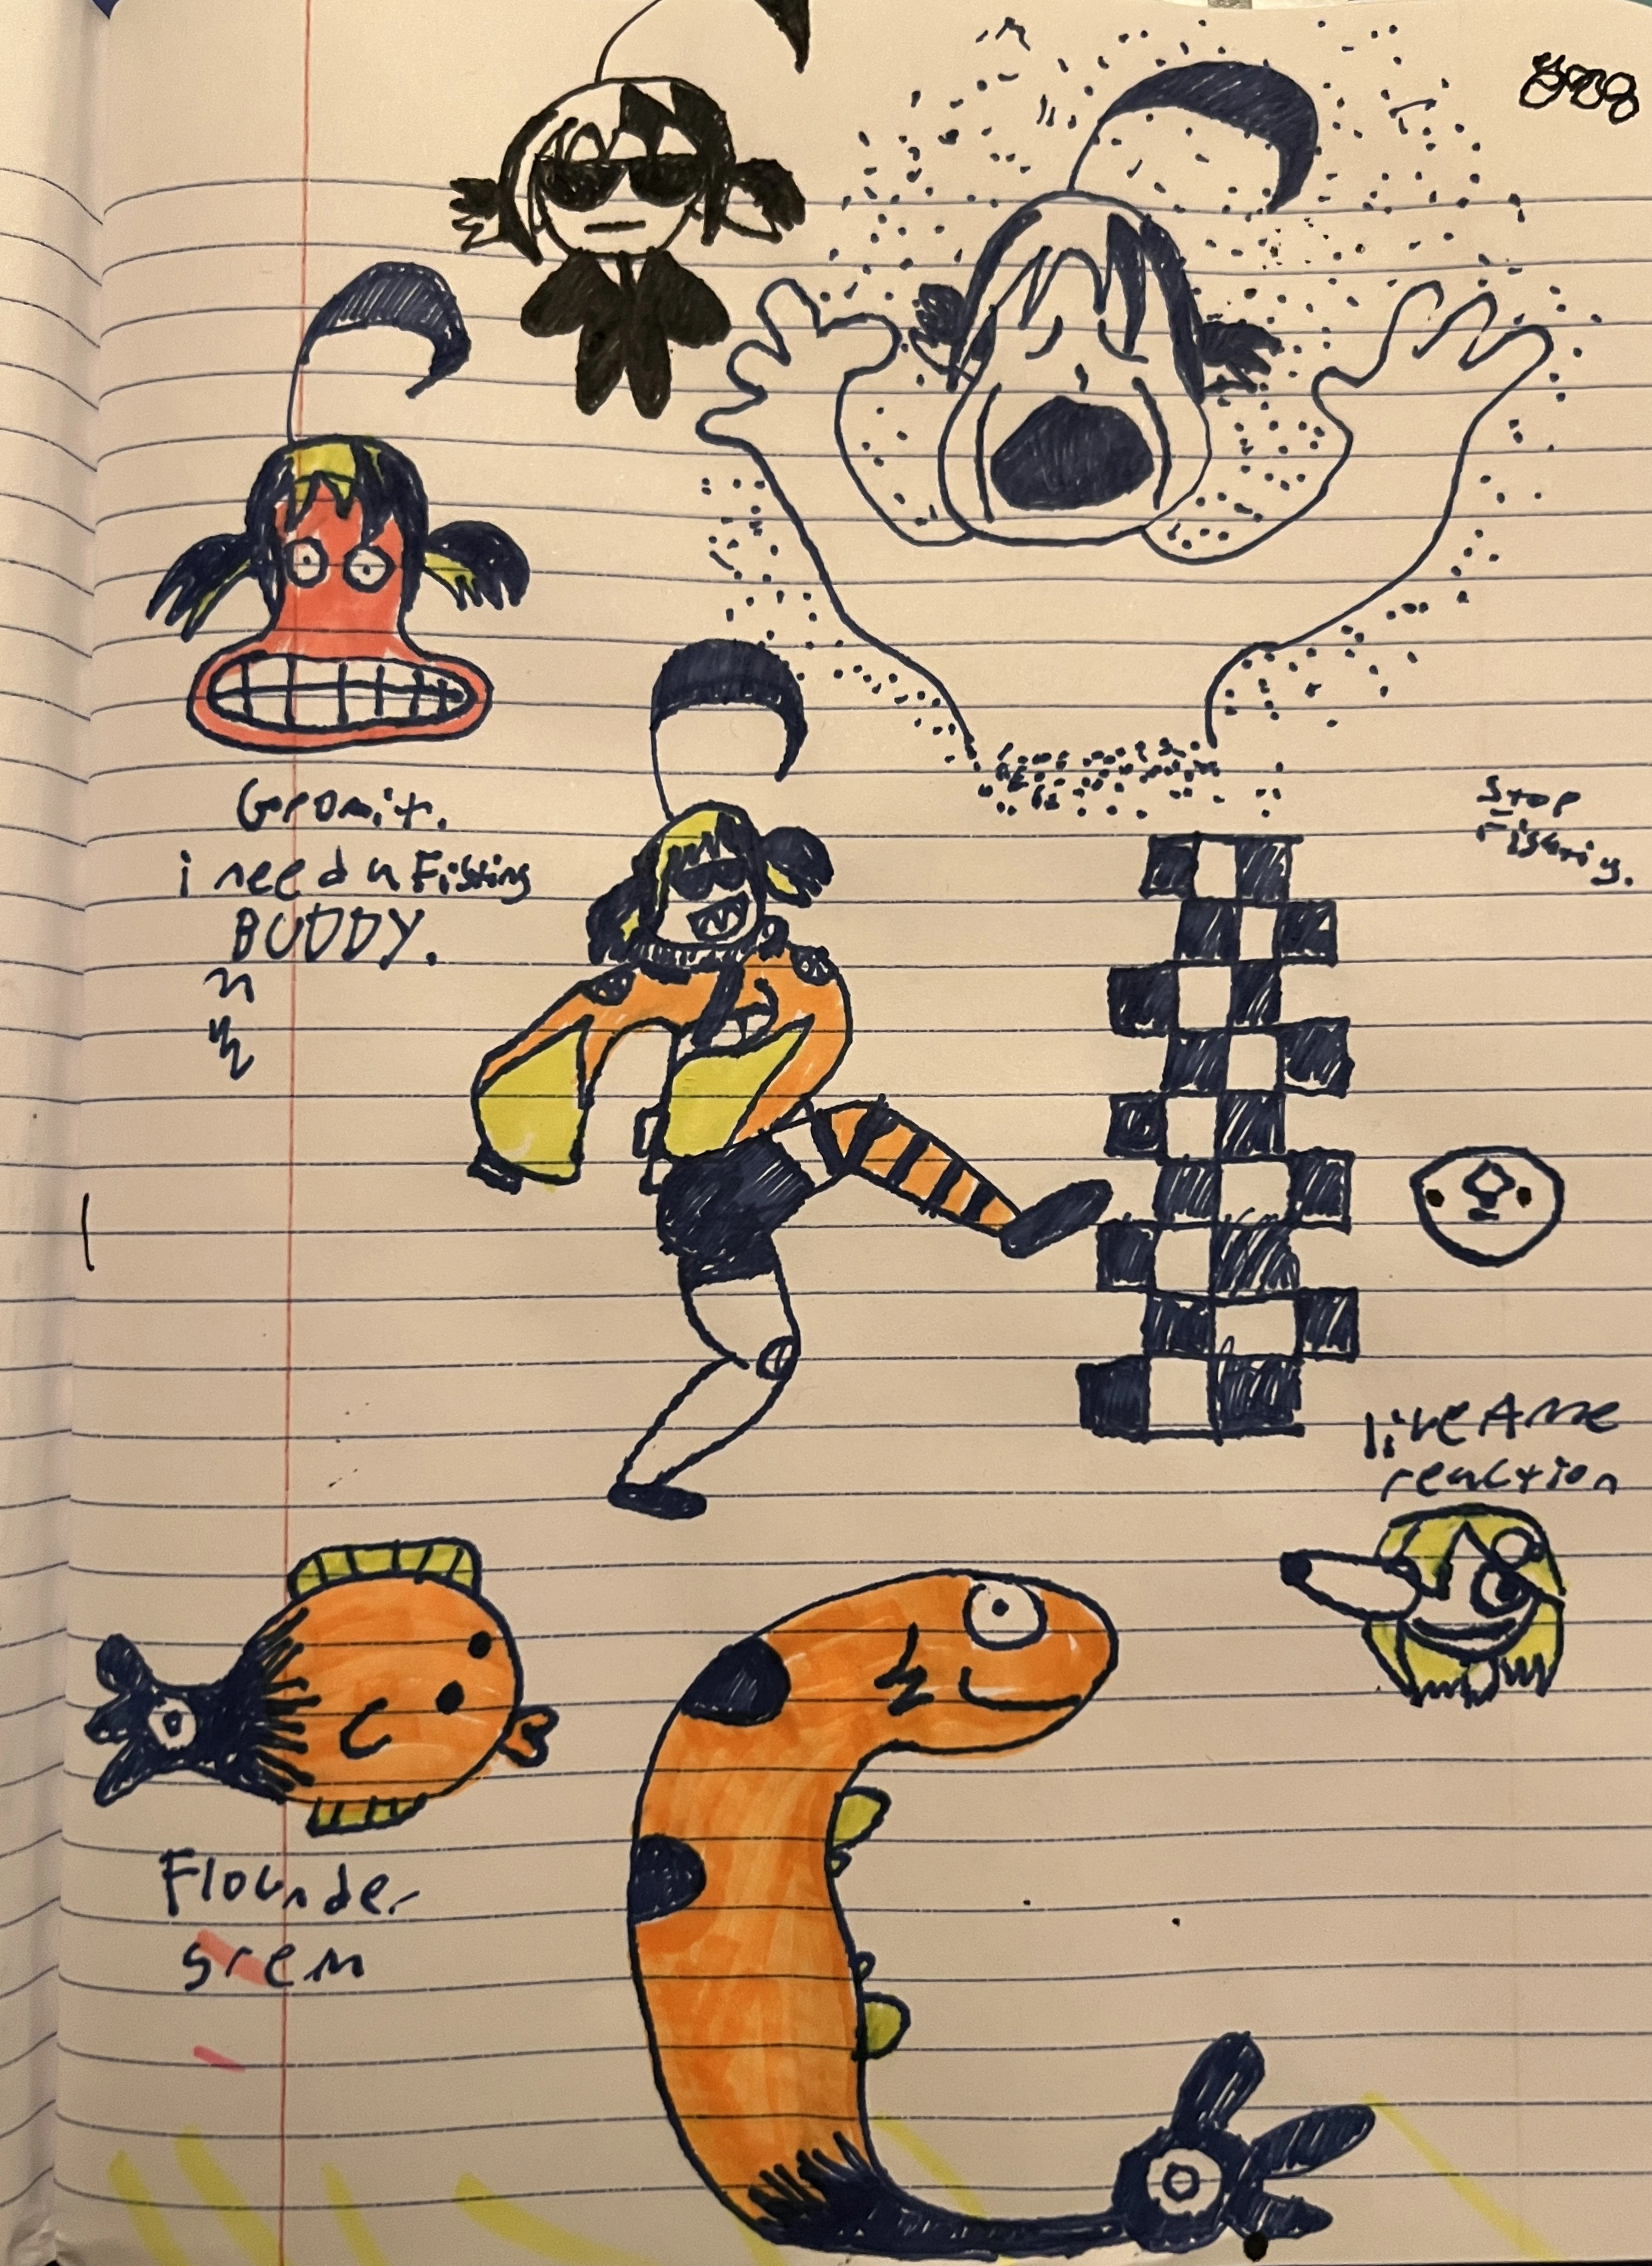 Gromit.
i need a Fishing
BUDDY.
Stop
Fishing.
live Ame
reaction
Flounder
srem